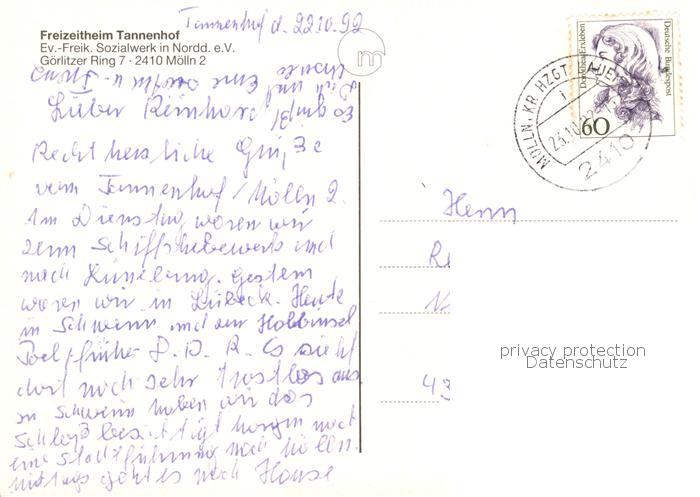 Tannenhof d. 22.10.92
Freizeitheim Tannenhof
Ev.-Freik. Sozialwerk in Nordd. e.V.
Görlitzer Ring 7 · 2410 Mölln 2
m
Lieber Reinhard
Recht herzliche Grüße
vom Tannenhof / Mölln 2.
Am Dienstag waren wir
zum Schiffshebewerk und
nach Lüneburg. Gestern
waren wir in Lübeck. Heute
in Schwerin und zur Halbinsel
Poel früher D. D. R. Es sieht
dort noch sehr trostlos aus
in Schwerin haben wir das
Schloß besichtigt morgen noch
eine Stadtführung nach Mölln.
mittags geht es nach Hause
Es grüßt
Dich und
Eure
u.
Deutsche Bundespost
Dorothea Erxleben
60
MÖLLN, KR HZGT LAUE
23.10.92
2410
Herrn
R
N
43
privacy protection
Datenschutz